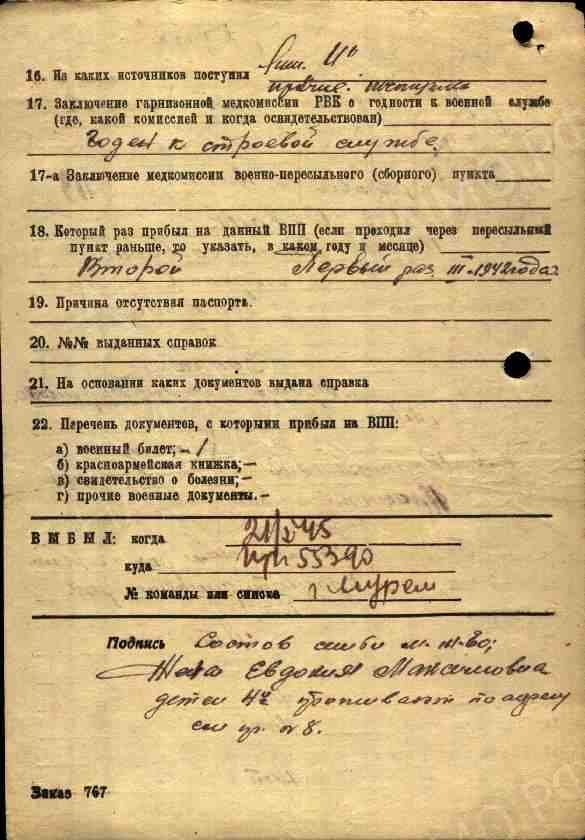 16. Из каких источников поступил
17. Заключение гарнизонной медкомиссии РВК о годности к военной службе
(где, какой комиссией и когда освидетельствован)
Годен к строевой службе.
17-а Заключение медкомиссии военно-пересыльного (сборного) пункта
18. Который раз прибыл на данный ВПП (если проходил через пересыльный
пункт раньше, то указать, в каком году и месяце)
Второй Первый раз III 1942 года
19. Причина отсутствия паспорта.
20. №№ выданных справок
21. На основании каких документов выдана справка
22. Перечень документов, с которыми прибыл на ВПП:
а) военный билет; – 1
б) красноармейская книжка; –
в) свидетельство о болезни; –
г) прочие военные документы. –
ВЫБЫЛ: когда
куда 55390
№ команды или списка г Муром
Подпись Состав
Жена Евдокия Максимовна
детей 4 проживают по адресу
№ 8.
Заказ 767